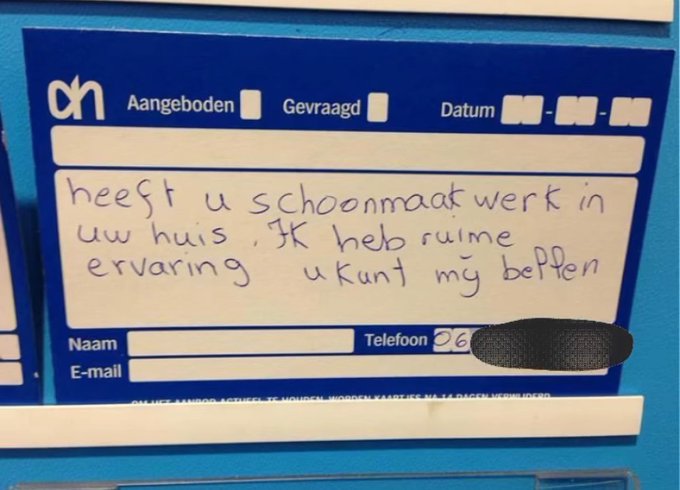 ah Aangeboden Gevraagd Datum - -
heeft u schoonmaak werk in
uw huis. Ik heb ruime
ervaring u kunt mij bellen
Naam Telefoon 06
E-mail
OM HET AANBOD ACTUEEL TE HOUDEN, WORDEN KAARTJES NA 14 DAGEN VERWIJDERD